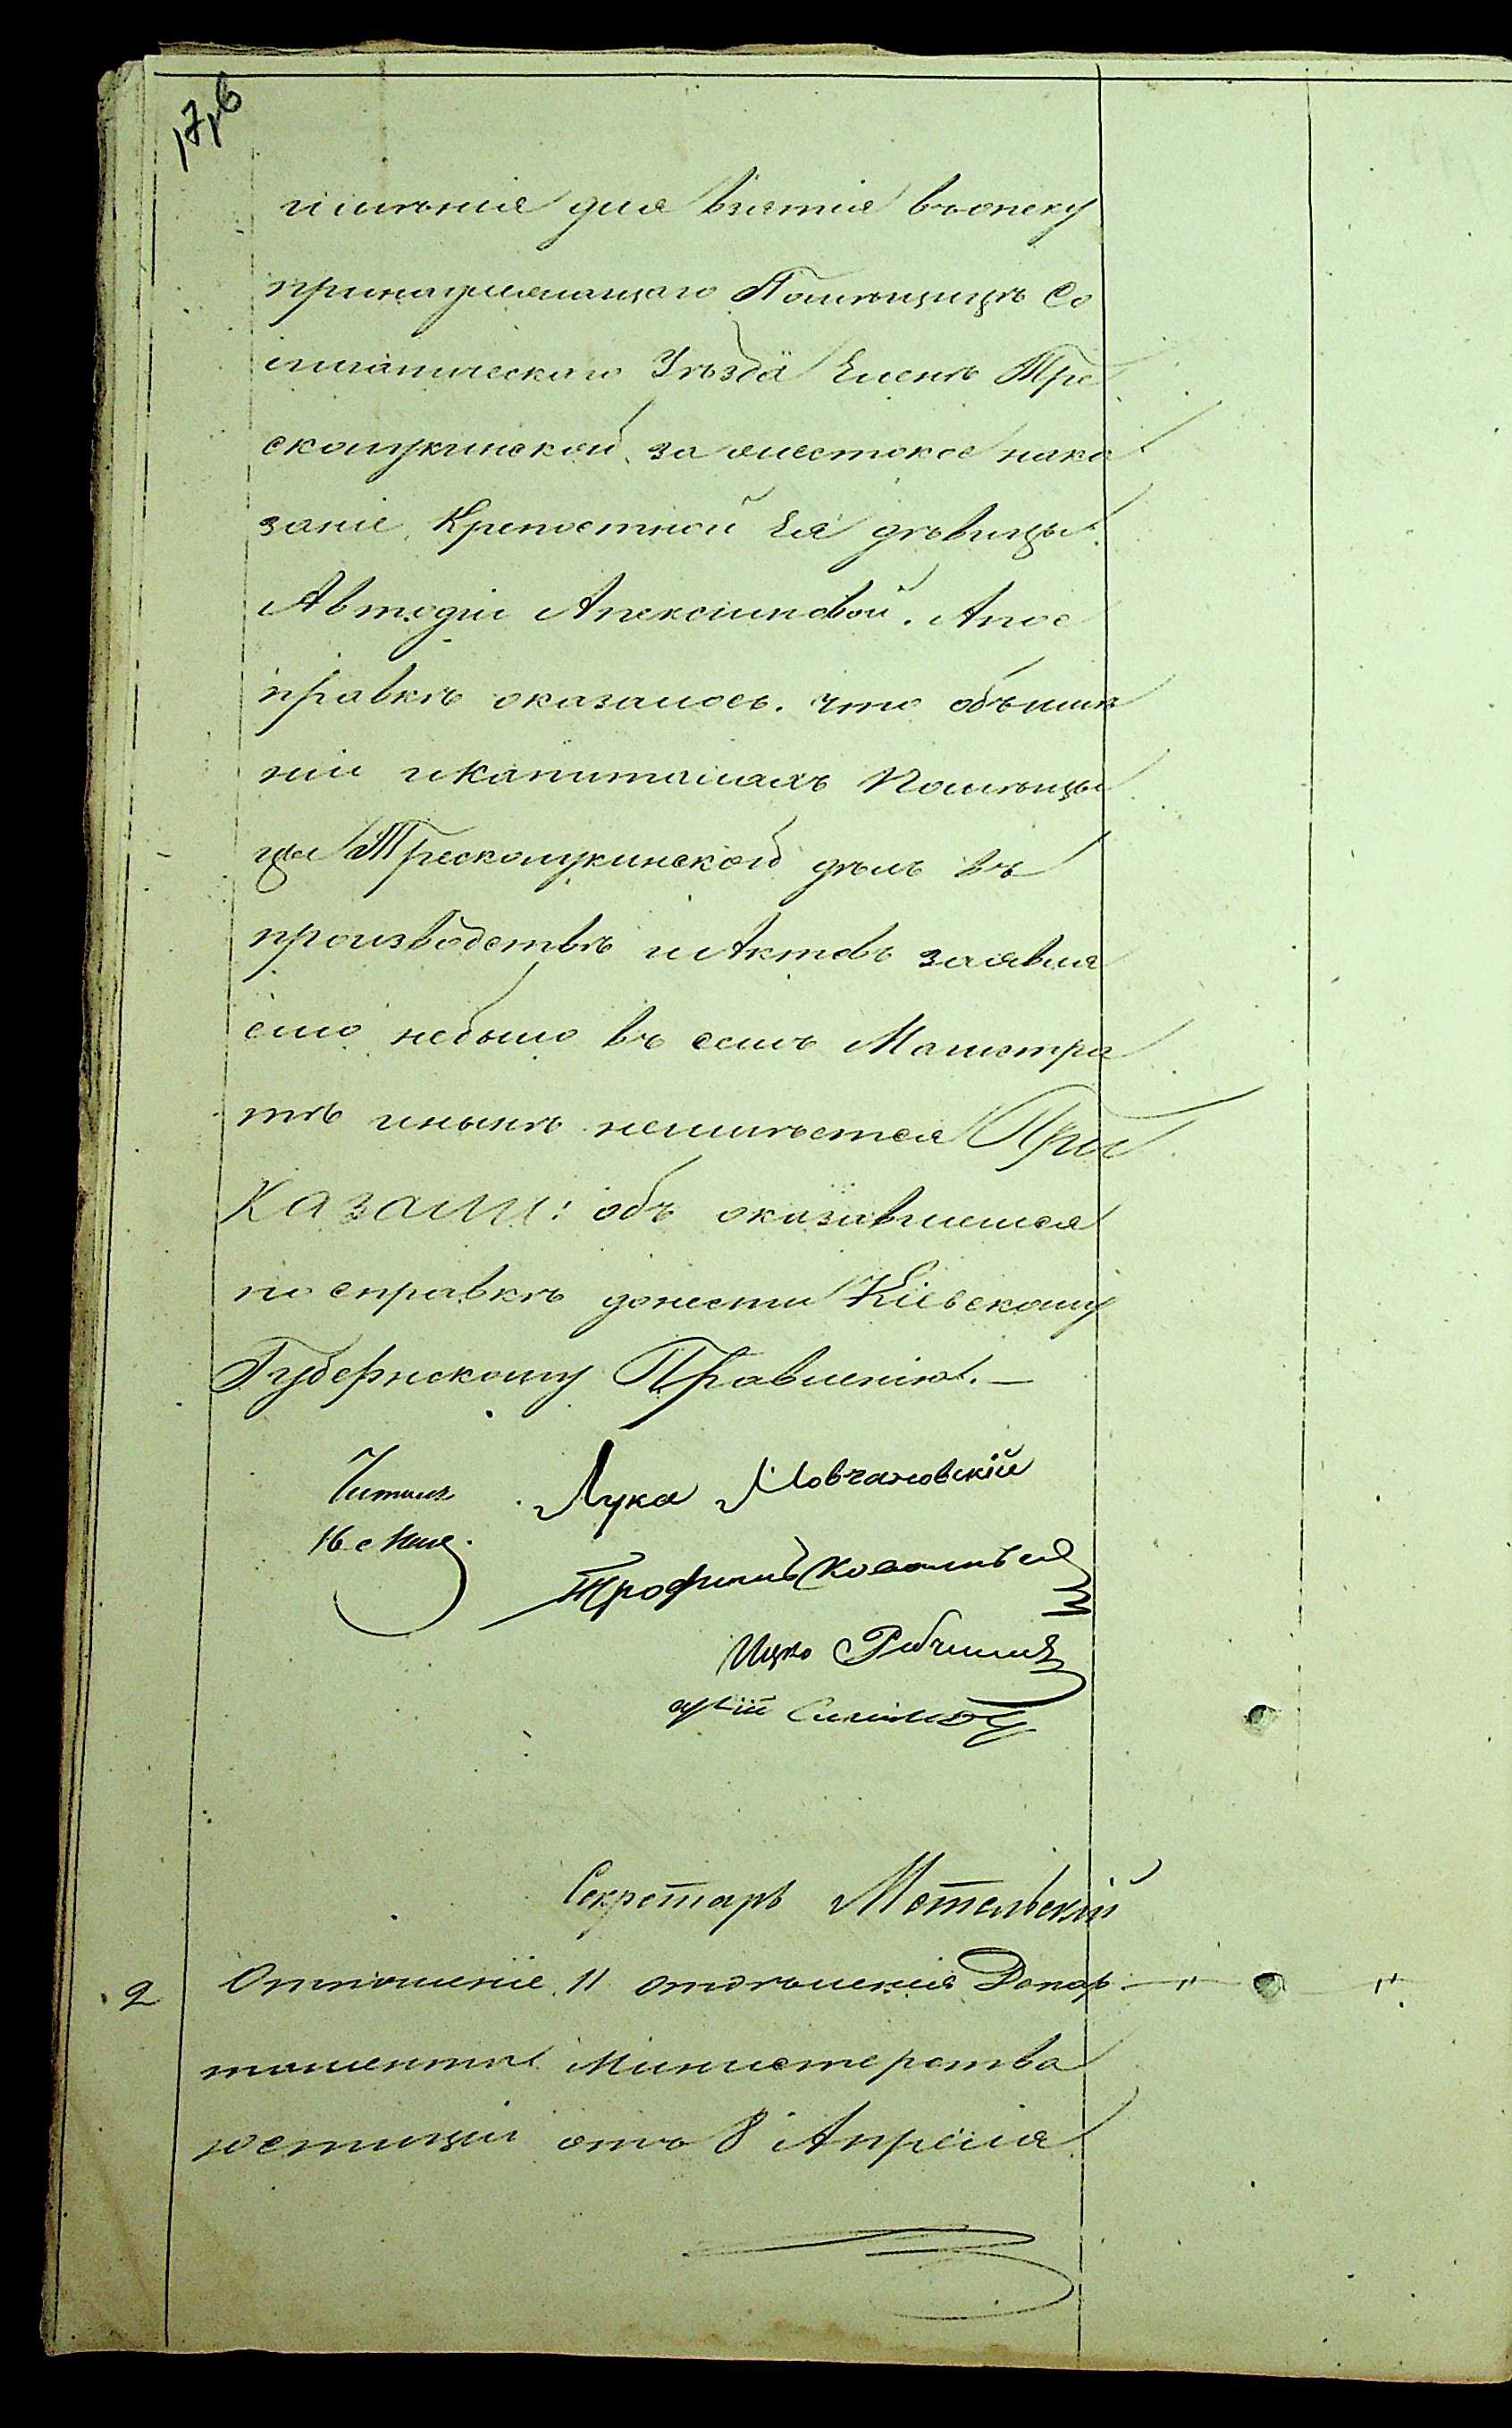 17,6
имѣніе для взятія въопеку
принадлежащаго Помѣщицѣ Со
Уѣзда Еленѣ Тре
сколукинской за жестокое нака
заніе Крепостной Ея дѣвицы
Автодіи Алексимовой. Апос
правкѣ оказалось. что объимѣ
ніи икапиталахъ Помѣщи
цы Тресколукинской дѣлъ въ
производствѣ иАктовъ заявля
емо небыло въ семъ Магистра
тѣ инынѣ неимѣется При
казали: объ оказавшемся
по справкѣ донести Кіевскому
Губернскому Правленію. —
Читалъ Лука Мовчановскій
16 с
Трофимъ
Ицко
Секретарь Метельскій
2 Отношеніе 11 отдѣленія Депар
тамента Министерства
юстиціи отъ 8 Апреля